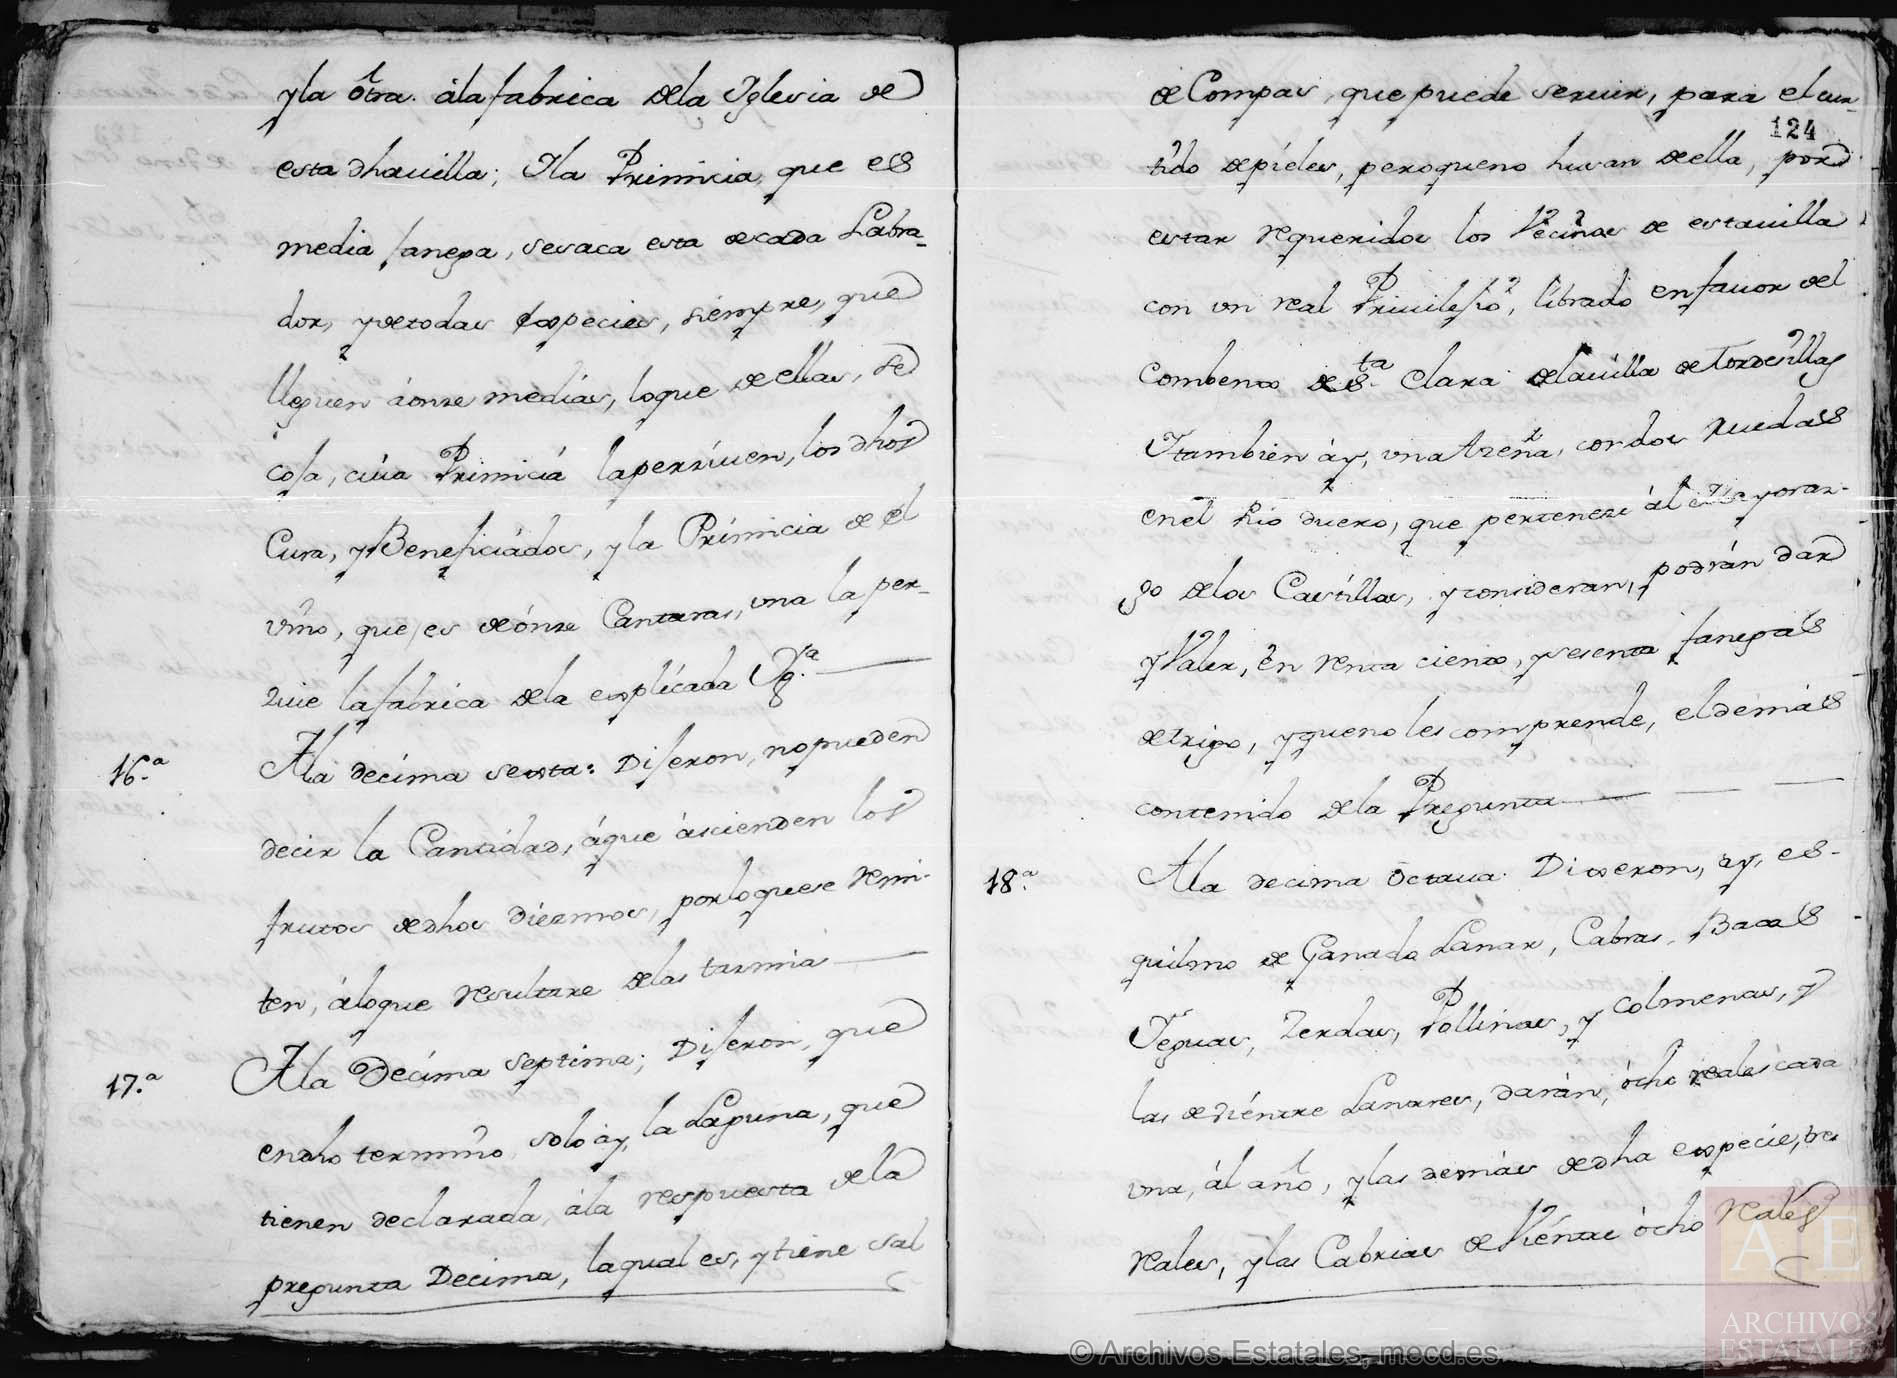 y la ôtra. á la fabrica de la Iglesia de
esta dha uilla; Y la Primicia, que es
media fanega, se saca esta de cada Labra-
dor, y de todas especies, siempre, que
lleguen á onze medias, lo que de ellas, se
coja, cúia Primicia la perziuen, los dhos
Cura, y Beneficiádos, y la Primicia de el
vino, que, es de ónze Cantaras, una la per-
ziue la fabrica de la explicada Yg.ª
16.ª A la decima sexta: Dijeron, no pueden
decir la Cantidad, á que ascienden los
frutos de dhos diezmos, por lo que se remi-
ten, á lo que resultare de las tazmias
17.ª A la Decima septima; Dijeron, que
en dho termino, solo ay, la Laguna, que
tienen declarada, á la respuesta de la
pregunta Decima, la qual es, y tiene sal
de Compas, que puede seruir, para el cur-
124
tido de pieles, pero que no husan de ella, por
estar requeridos los Vecinos de esta uilla
con un real Priuilejio, librado en fauor del
Combento de S.ta Clara de la uilla de Tordesillas
Y tambien ay, una Azeña, con dos Ruedas
en el Rio duero, que perteneze ál Mayoraz-
go de los Castillas, y consideran, podrán dar
y Valer, en renta ciento, y sesenta fanegas
de trigo, y que no les comprende, el demás
contenido de la Pregunta
18.ª A la decima Octaua. Dixeron, ay, es-
quilmo de Ganado Lanar, Cabras, Bacas
Yeguas, Zerdas, Pollinas, y colmenas, y
las de viéntre Lanares, darán, ócho reales cada
una, ál año, y las demás de dha expecie, tres
reales, y las Cabrias de Viéntre ócho reales
© Archivos Estatales, mecd.es
AE
ARCHIVOS
ESTATALES